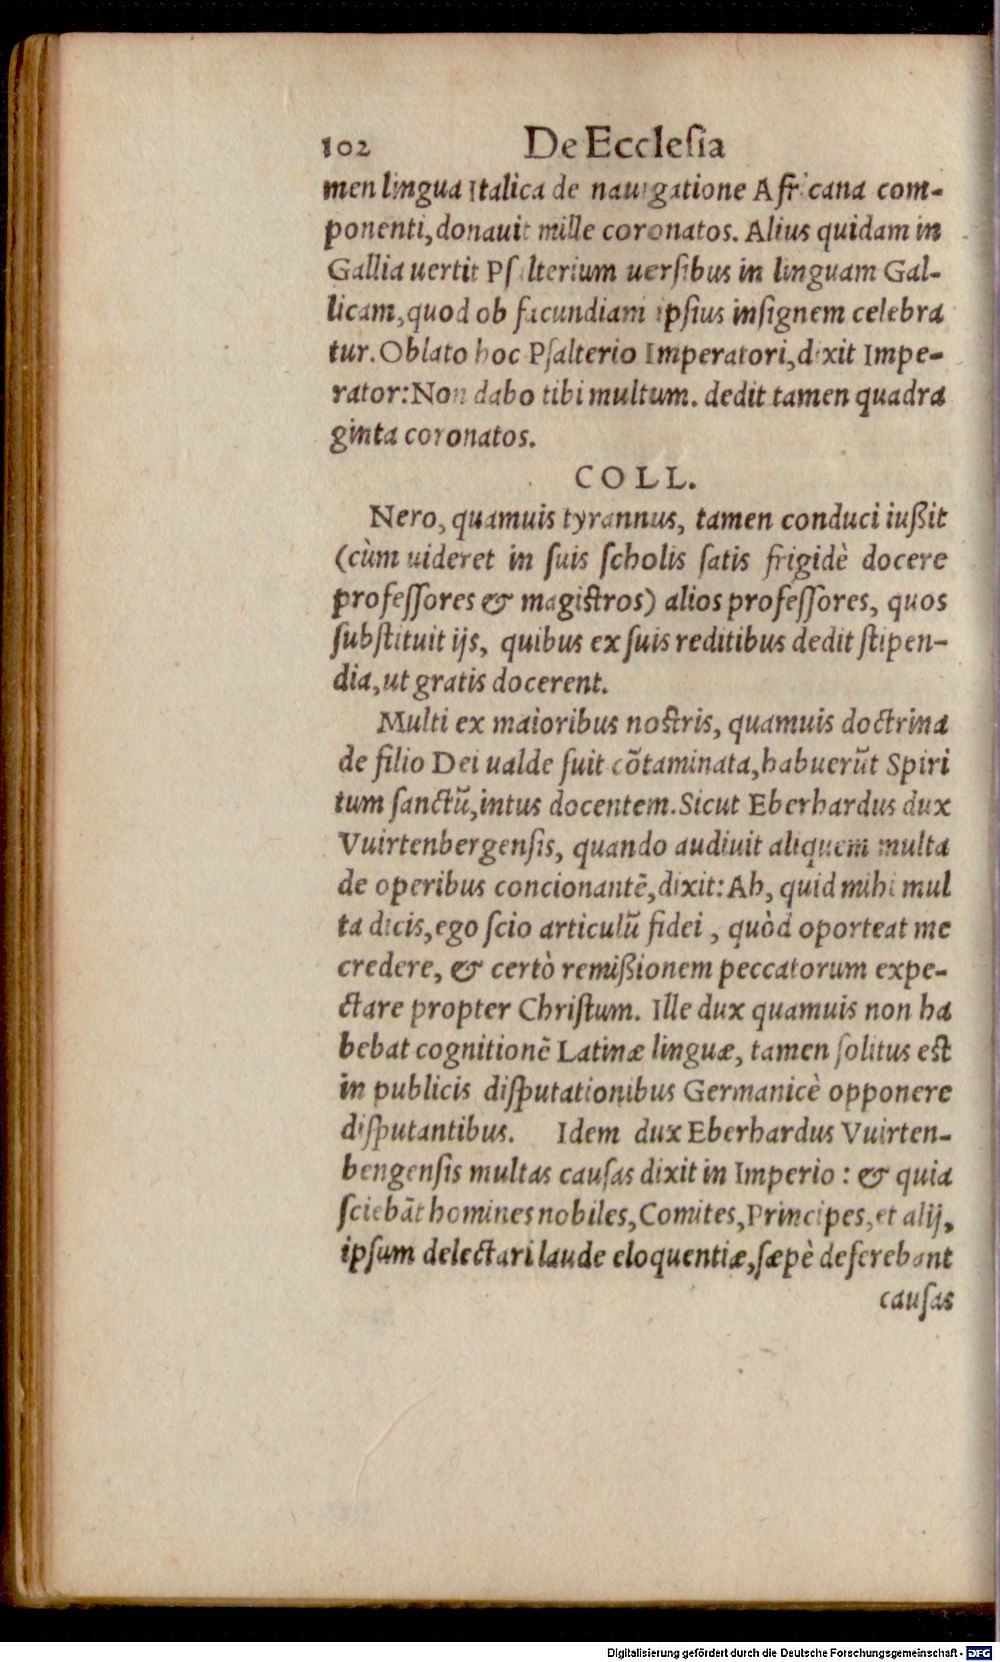 102 De Ecclesia
men lingua Italica de nauigatione Africana com-
ponenti, donauit mille coronatos. Alius quidam in
Gallia uertit Psalterium uersibus in linguam Gal-
licam, quod ob facundiam ipsius insignem celebra
tur. Oblato hoc Psalterio Imperatori, dixit Impe-
rator: Non dabo tibi multum. dedit tamen quadra
ginta coronatos.
COLL.
Nero, quamuis tyrannus, tamen conduci iußit
(cùm uideret in suis scholis satis frigidè docere
professores & magistros) alios professores, quos
substituit ijs, quibus ex suis reditibus dedit stipen-
dia, ut gratis docerent.
Multi ex maioribus nostris, quamuis doctrina
de filio Dei ualde fuit cõtaminata, habuerũt Spiri
tum sanctũ, intus docentem. Sicut Eberhardus dux
Vuirtenbergensis, quando audiuit aliquem multa
de operibus concionantẽ, dixit: Ah, quid mihi mul
ta dicis, ego scio articulũ fidei, quòd oporteat me
credere, & certò remißionem peccatorum expe-
ctare propter Christum. Ille dux quamuis non ha
bebat cognitionẽ Latinæ linguæ, tamen solitus est
in publicis disputationibus Germanicè opponere
disputantibus. Idem dux Eberhardus Vuirten-
bengensis multas causas dixit in Imperio: & quia
sciebãt homines nobiles, Comites, Principes, et alij,
ipsum delectari laude eloquentiæ, sæpè deferebant
causas
Digitalisierung gefördert durch die Deutsche Forschungsgemeinschaft - DFG